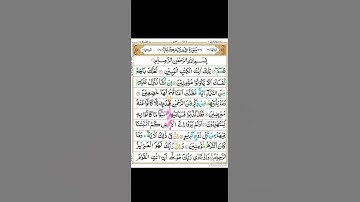 بِسْمِ اللهِ الرَّحْمٰنِ الرَّحِيْمِ
طٰسٓمّٓ ۝ تِلْكَ اٰيٰتُ الْكِتٰبِ الْمُبِيْنِ ۝ لَعَلَّكَ بَاخِعٌ
نَّفْسَكَ اَلَّا يَكُوْنُوْا مُؤْمِنِيْنَ ۝ اِنْ نَّشَاْ نُنَزِّلْ عَلَيْهِمْ
مِّنَ السَّمَآءِ اٰيَةً فَظَلَّتْ اَعْنَاقُهُمْ لَهَا خٰضِعِيْنَ ۝
وَمَا يَاْتِيْهِمْ مِّنْ ذِكْرٍ مِّنَ الرَّحْمٰنِ مُحْدَثٍ اِلَّا كَانُوْا عَنْهُ
مُعْرِضِيْنَ ۝ فَقَدْ كَذَّبُوْا فَسَيَاْتِيْهِمْ اَنْۢبٰٓؤُا مَا كَانُوْا بِهٖ
يَسْتَهْزِءُوْنَ ۝ اَوَلَمْ يَرَوْا اِلَى الْاَرْضِ كَمْ اَنْۢبَتْنَا
فِيْهَا مِنْ كُلِّ زَوْجٍ كَرِيْمٍ ۝ اِنَّ فِيْ ذٰلِكَ لَاٰيَةً ؕ وَمَا
كَانَ اَكْثَرُهُمْ مُّؤْمِنِيْنَ ۝ وَاِنَّ رَبَّكَ لَهُوَ الْعَزِيْزُ
الرَّحِيْمُ ۝ وَاِذْ نَادٰى رَبُّكَ مُوْسٰٓى اَنِ ائْتِ الْقَوْمَ